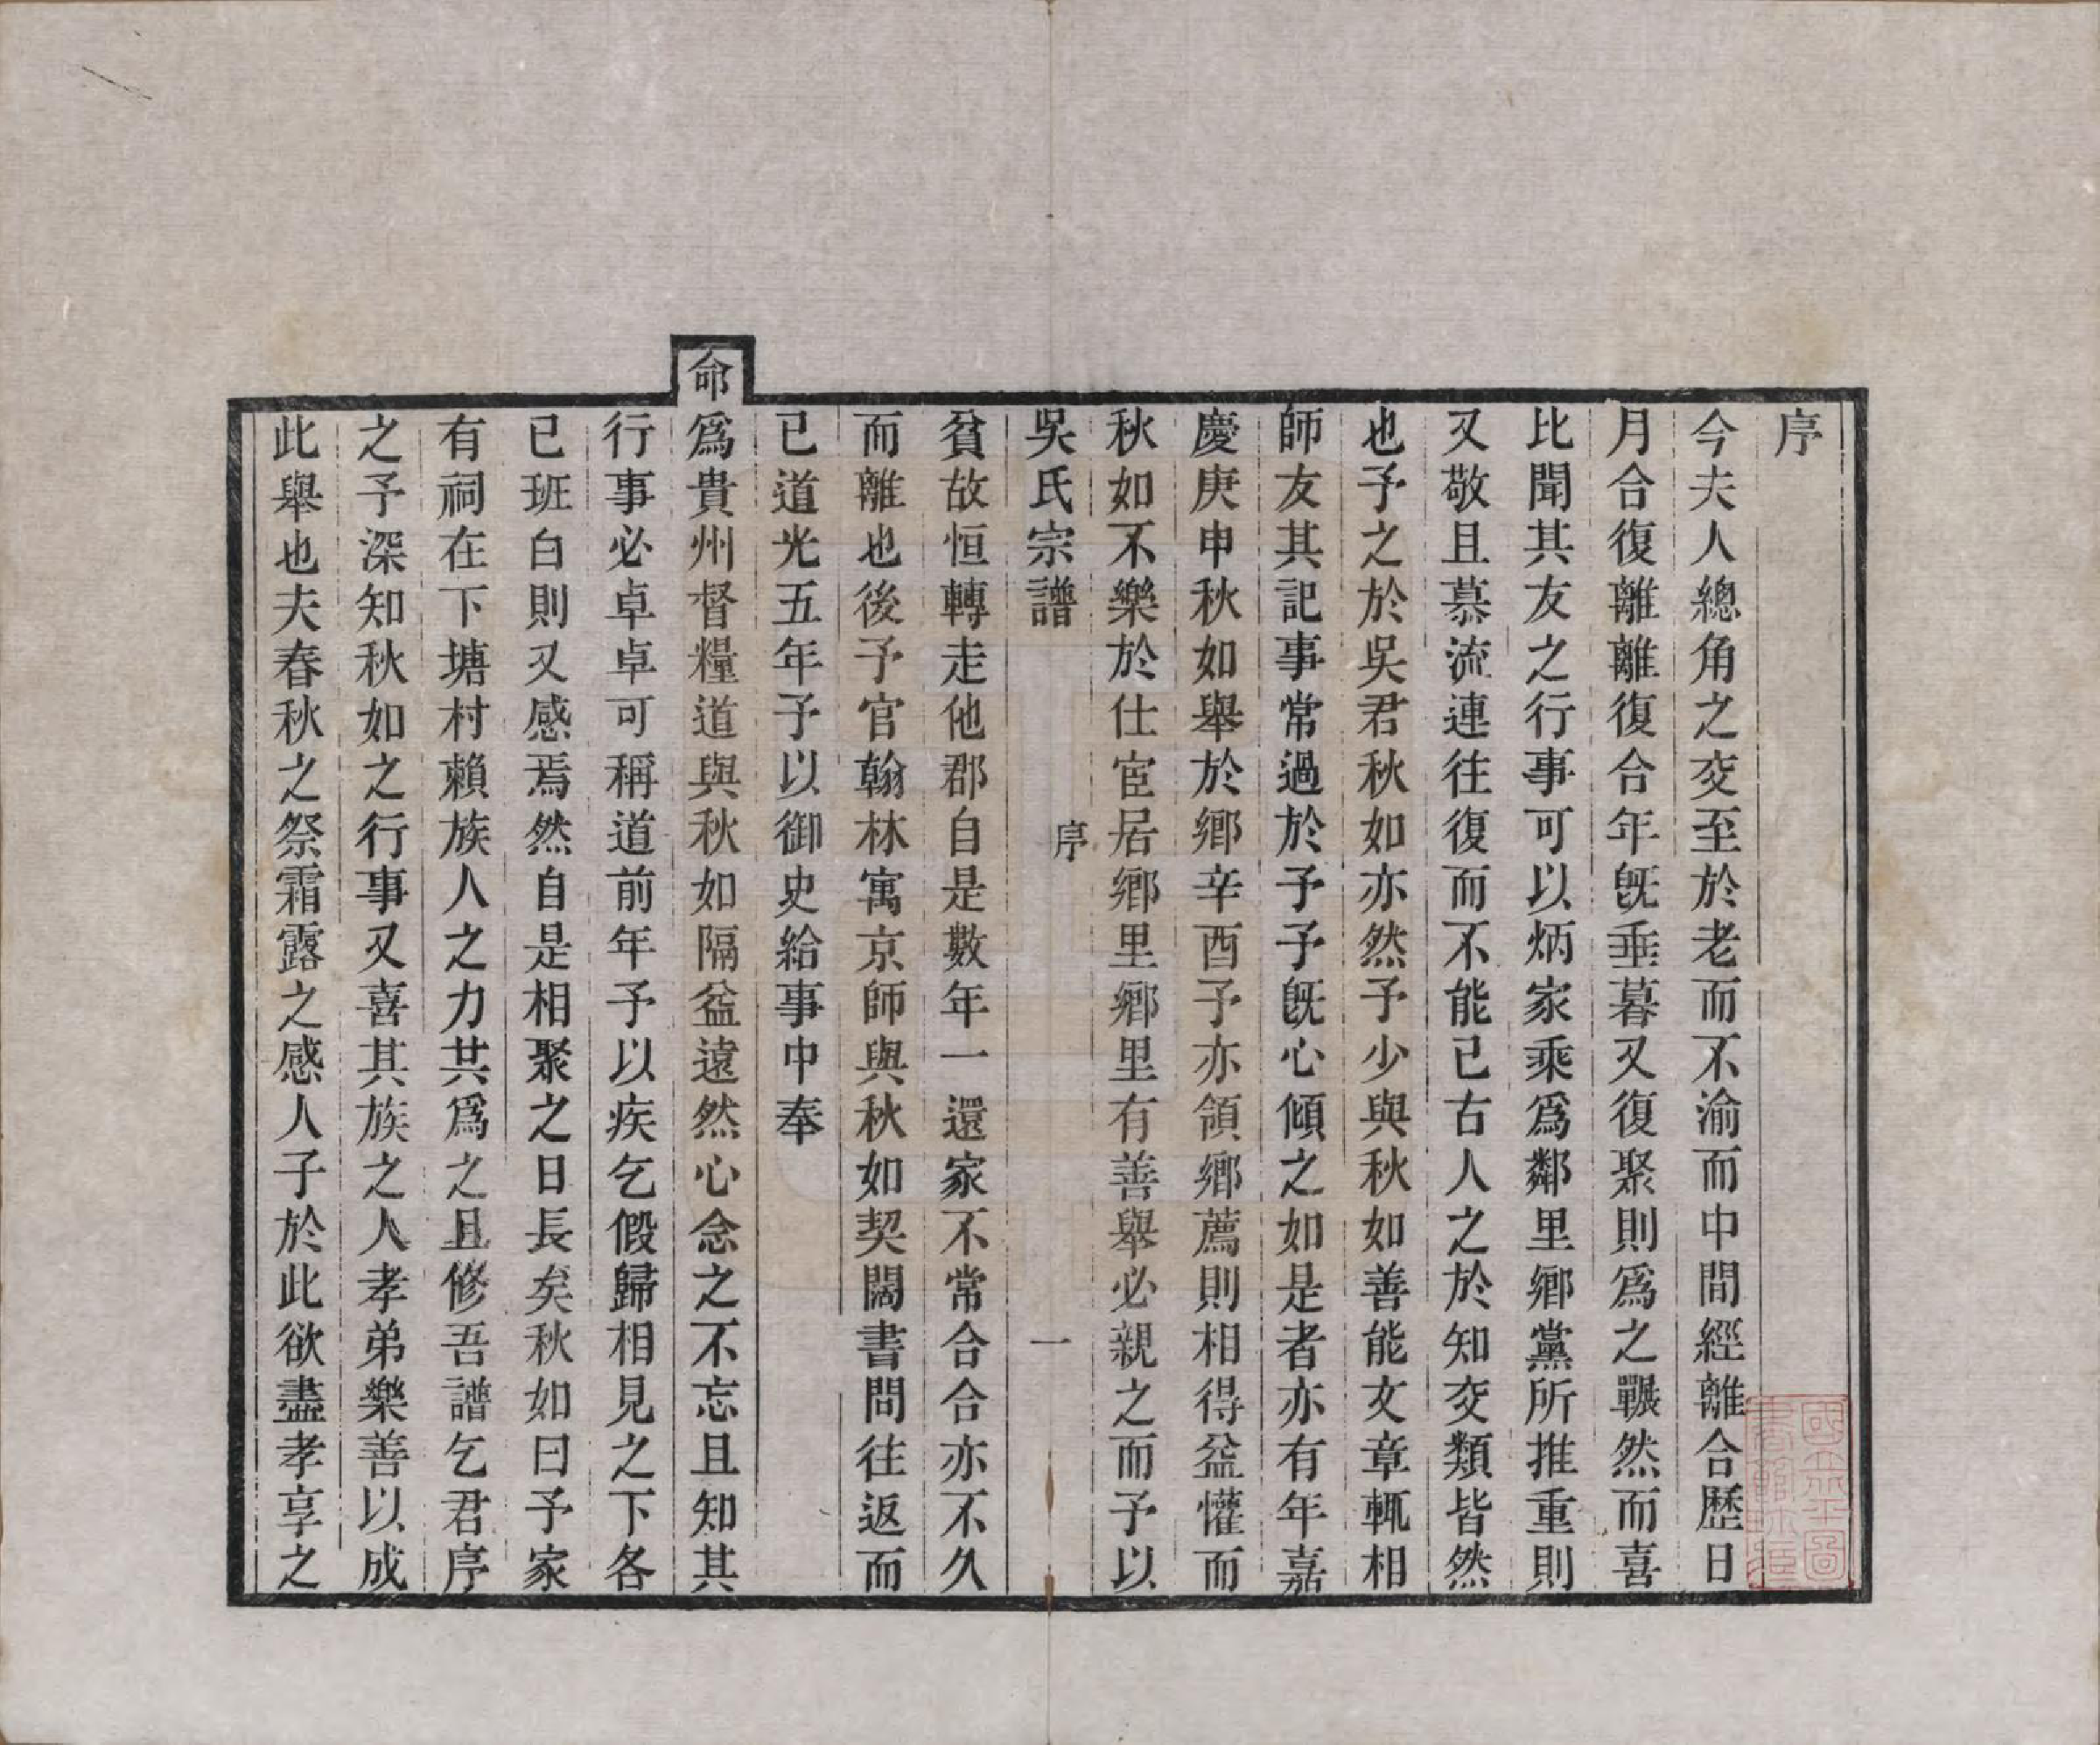 序
今夫人總角之交至於老而不渝而中間經離合歷日
月合復離離復合年旣垂暮又復聚則爲之囅然而喜
比聞其友之行事可以炳家乘爲鄰里鄉黨所推重則
又敬且慕流連往復而不能已古人之於知交類皆然
也予之於吳君秋如亦然予少與秋如善能文章輒相
師友其記事常過於予予旣心傾之如是者亦有年嘉
慶庚申秋如舉於鄉辛酉予亦領鄉薦則相得益懽而
秋如不樂於仕宦居鄉里鄉里有善舉必親之而予以
吳氏宗譜 序 一
貧故恒轉走他郡自是數年一還家不常合合亦不久
而離也後予官翰林寓京師與秋如契闊書問往返而
已道光五年予以御史給事中奉
命爲貴州督糧道與秋如隔益遠然心念之不忘且知其
行事必卓卓可稱道前年予以疾乞假歸相見之下各
已班白則又感焉然自是相聚之日長矣秋如曰予家
有祠在下塘村賴族人之力共爲之且修吾譜乞君序
之予深知秋如之行事又喜其族之人孝弟樂善以成
此舉也夫春秋之祭霜露之感人子於此欲盡孝享之